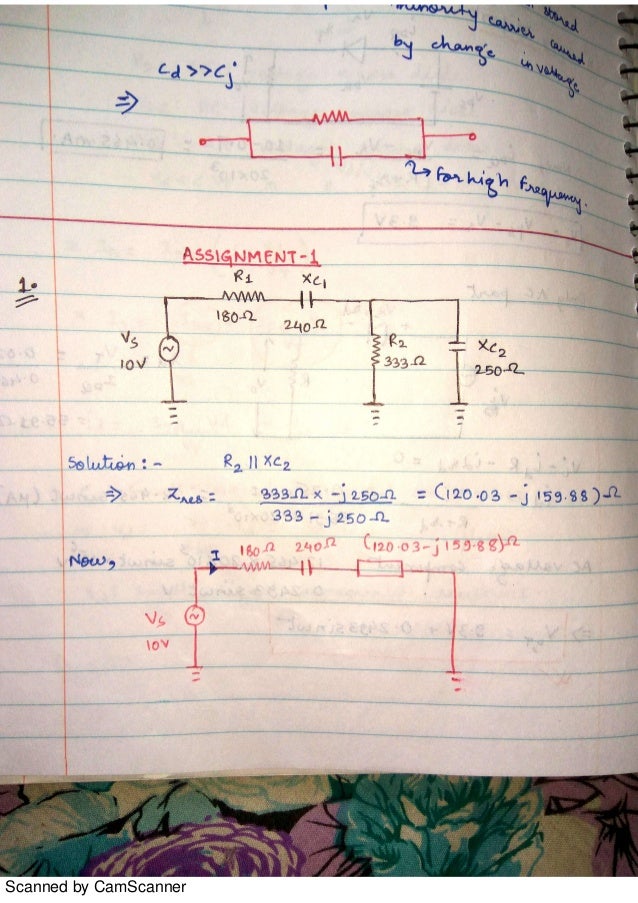 stored
minority carrier caused
by change in voltage
Cd>>Cj
⇒
→ For high frequency.
ASSIGNMENT-1
1.
R1 XC1
180Ω 240Ω
Vs
10V
R2
333Ω
XC2
250Ω
Solution :- R2 || XC2
⇒ Zres = 333Ω x -j250Ω / 333 - j250Ω = (120.03 - j159.88)Ω
Now, I 180Ω 240Ω (120.03-j159.88)Ω
Vs
10V
Scanned by CamScanner